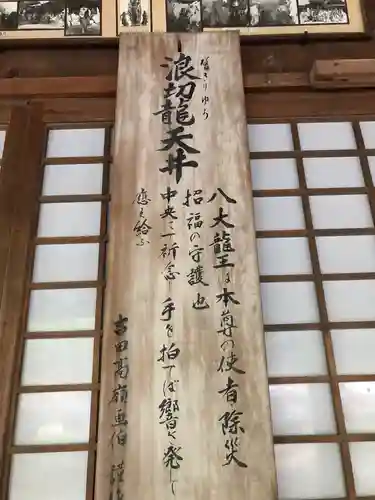 浪切龍天井
八大龍王は本尊の使者 除災
招福の守護也
中央に祈念し手を拍てば響を発し
応え給ふ
吉田高嶺画伯